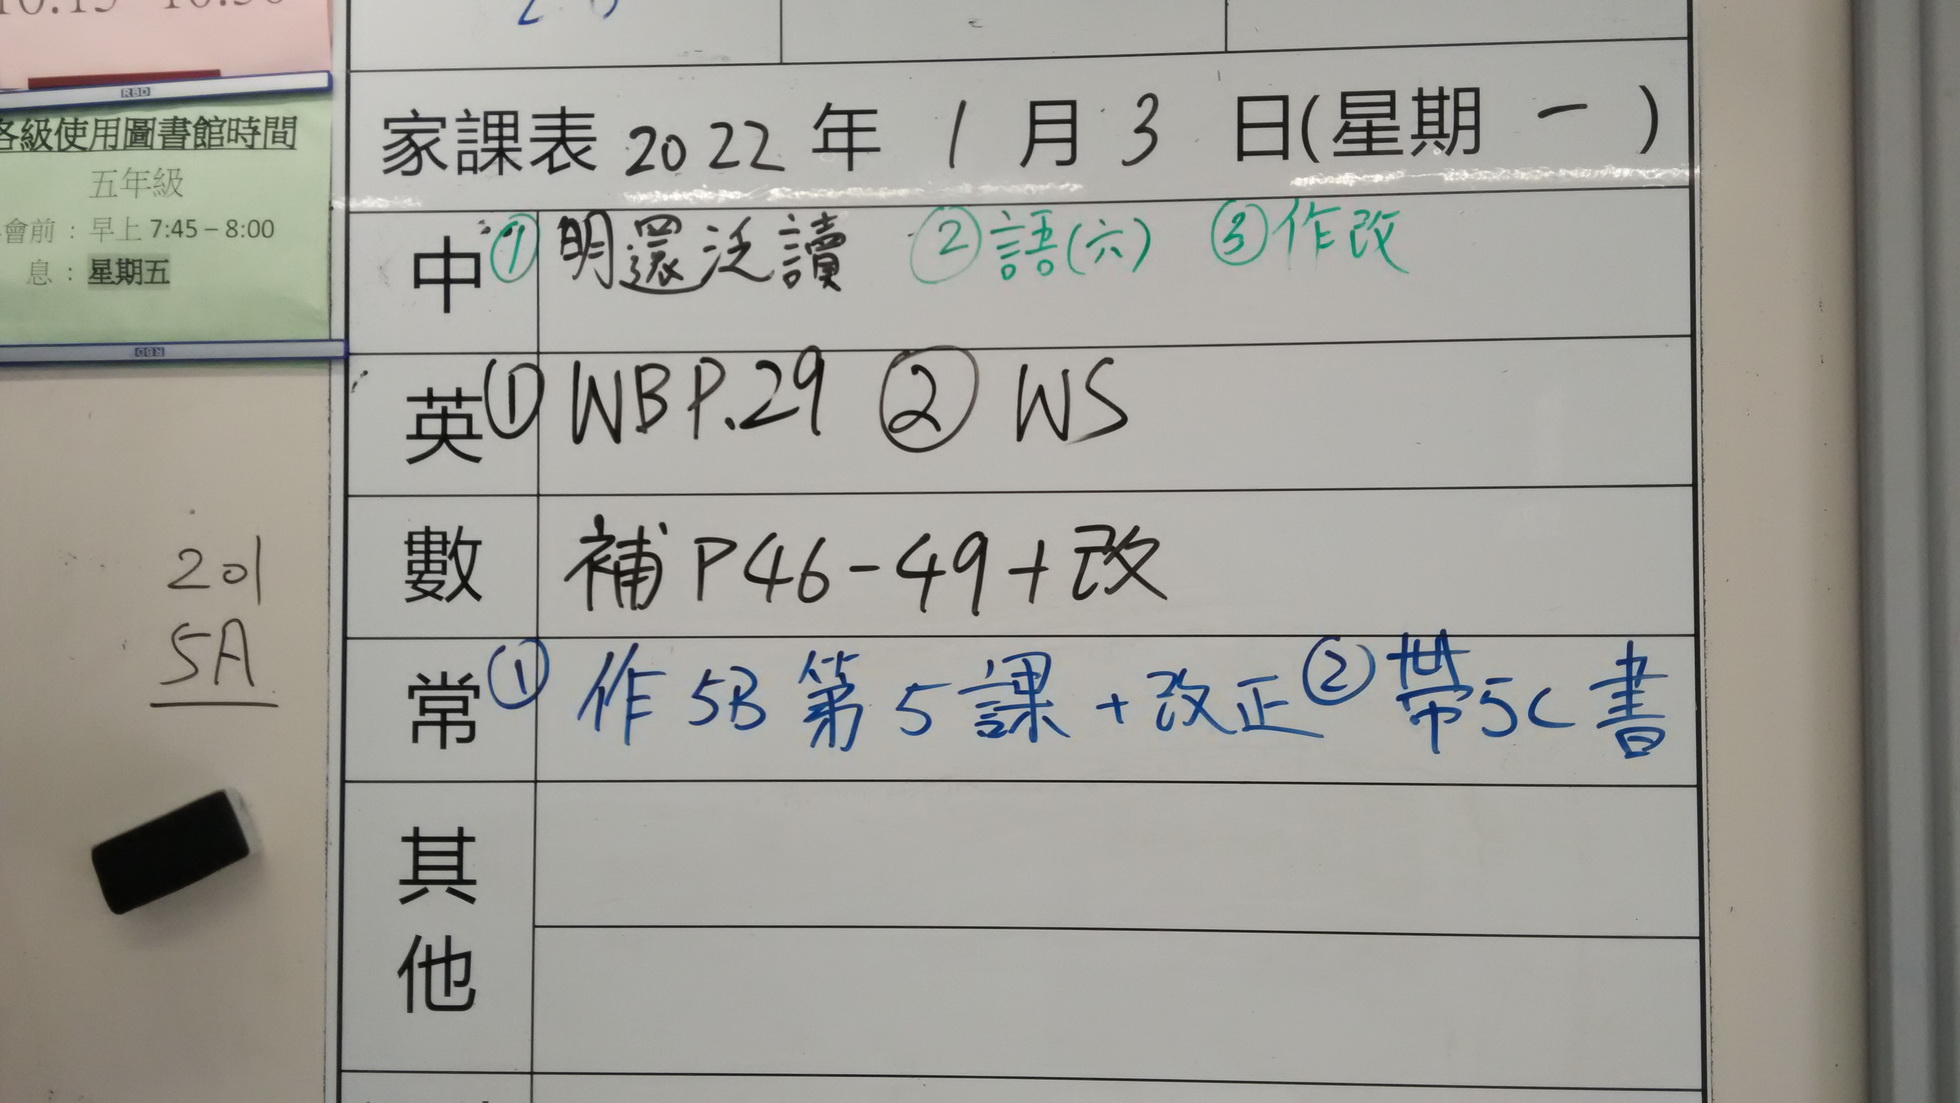 各級使用圖書館時間
五年級
會前：早上 7:45 – 8:00
息：星期五
201
5A
家課表 2022 年 1 月 3 日(星期 一 )
中 ① 明還泛讀 ② 語(六) ③ 作改
英 ① WB P.29 ② WS
數 補 P46-49+改
常 ① 作 5B 第 5 課 + 改正 ② 帶 5C 書
其他